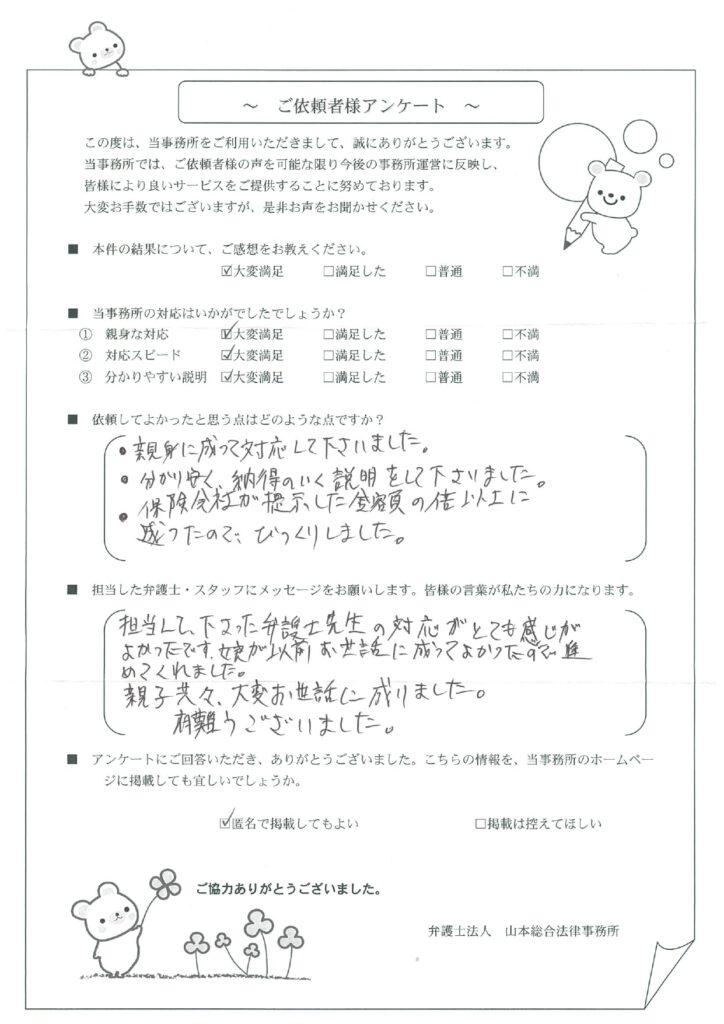 ～ ご依頼者様アンケート ～
この度は、当事務所をご利用いただきまして、誠にありがとうございます。
当事務所では、ご依頼者様の声を可能な限り今後の事務所運営に反映し、
皆様により良いサービスをご提供することに努めております。
大変お手数ではございますが、是非お声をお聞かせください。
■ 本件の結果について、ご感想をお教えください。
☑大変満足 □満足した □普通 □不満
■ 当事務所の対応はいかがでしたでしょうか？
① 親身な対応 ☑大変満足 □満足した □普通 □不満
② 対応スピード ☑大変満足 □満足した □普通 □不満
③ 分かりやすい説明 ☑大変満足 □満足した □普通 □不満
■ 依頼してよかったと思う点はどのような点ですか？
・親身に成って対応して下さいました。
・分かり安く、納得のいく説明をして下さいました。
・保険会社が提示した金額の倍以上に
成ったので、びっくりしました。
■ 担当した弁護士・スタッフにメッセージをお願いします。皆様の言葉が私たちの力になります。
担当して、下さった弁護士先生の対応がとても感じが
よかったです。娘が以前お世話に成ってよかったので進
めてくれました。
親子共々、大変お世話に成りました。
有難うございました。
■ アンケートにご回答いただき、ありがとうございました。こちらの情報を、当事務所のホームペー
ジに掲載しても宜しいでしょうか。
☑匿名で掲載してもよい □掲載は控えてほしい
ご協力ありがとうございました。
弁護士法人 山本総合法律事務所